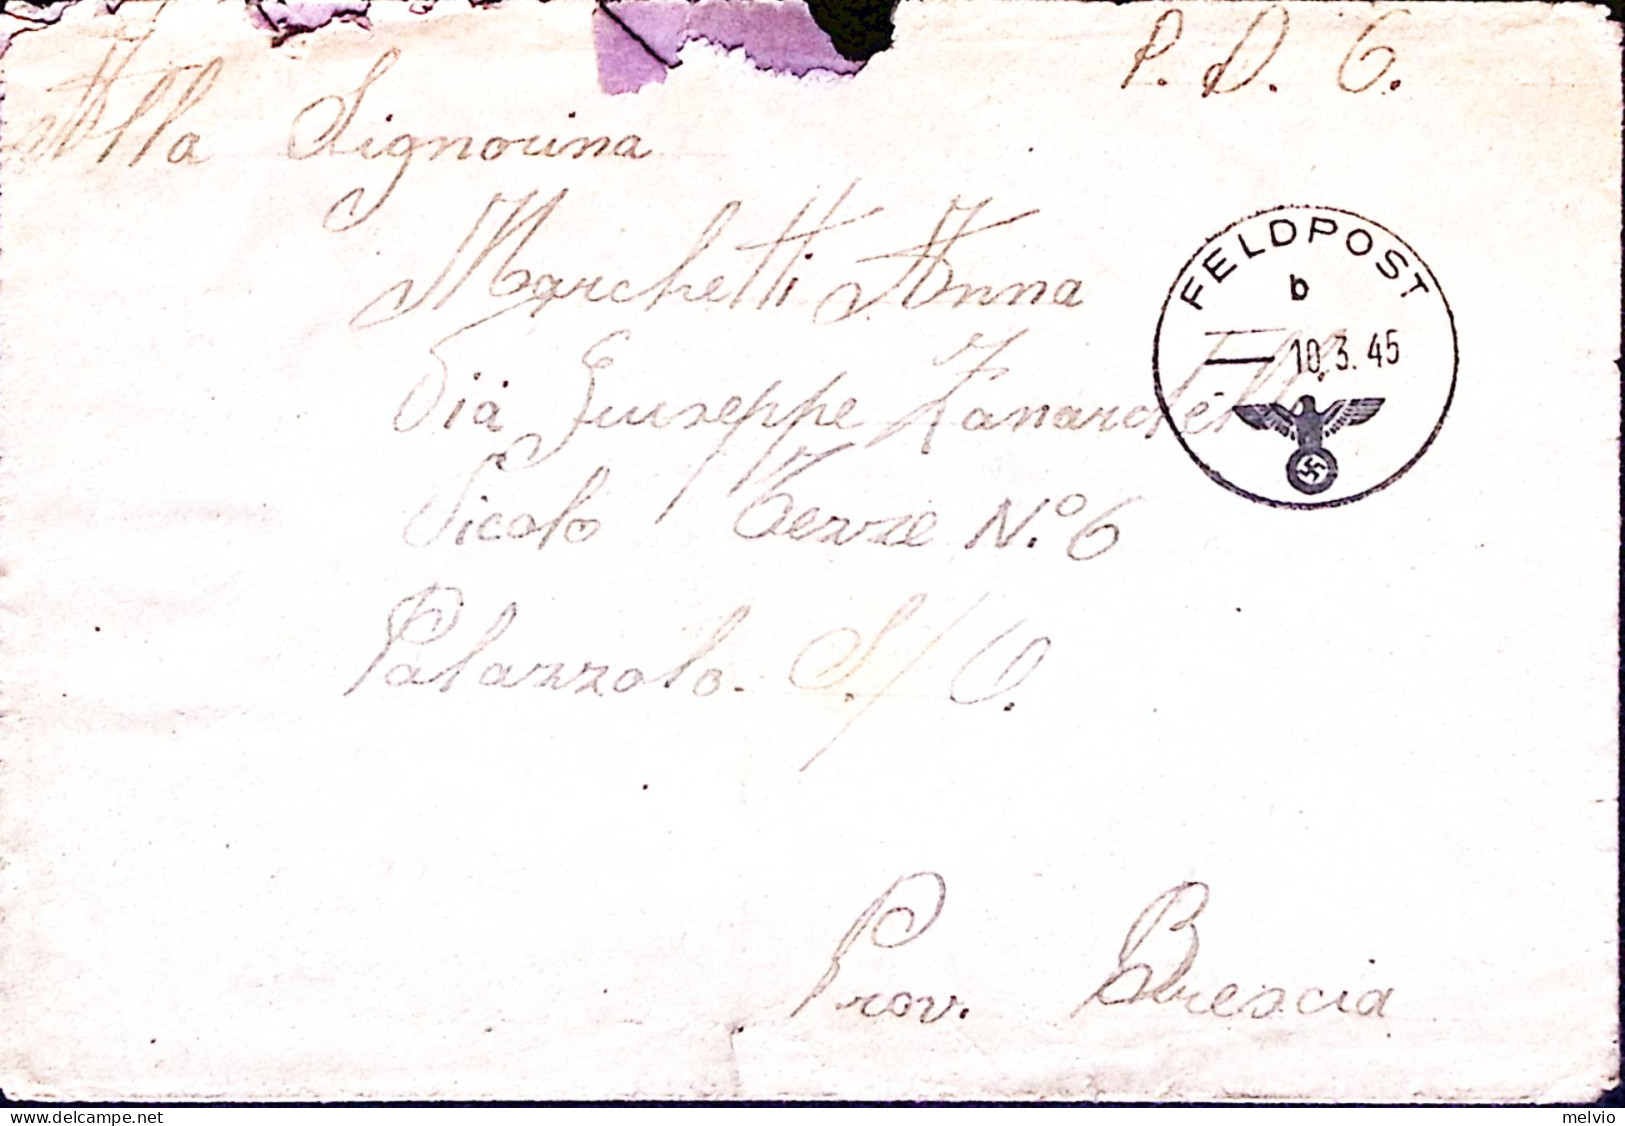 P. D. G.
Alla Signorina
Marchetti Anna
Via Giuseppe Zanardelli
Vicolo Terzo N.º 6
Palazzolo. S./O.
Prov. Brescia
FELDPOST
b
10.3.45
melvio
www.delcampe.net